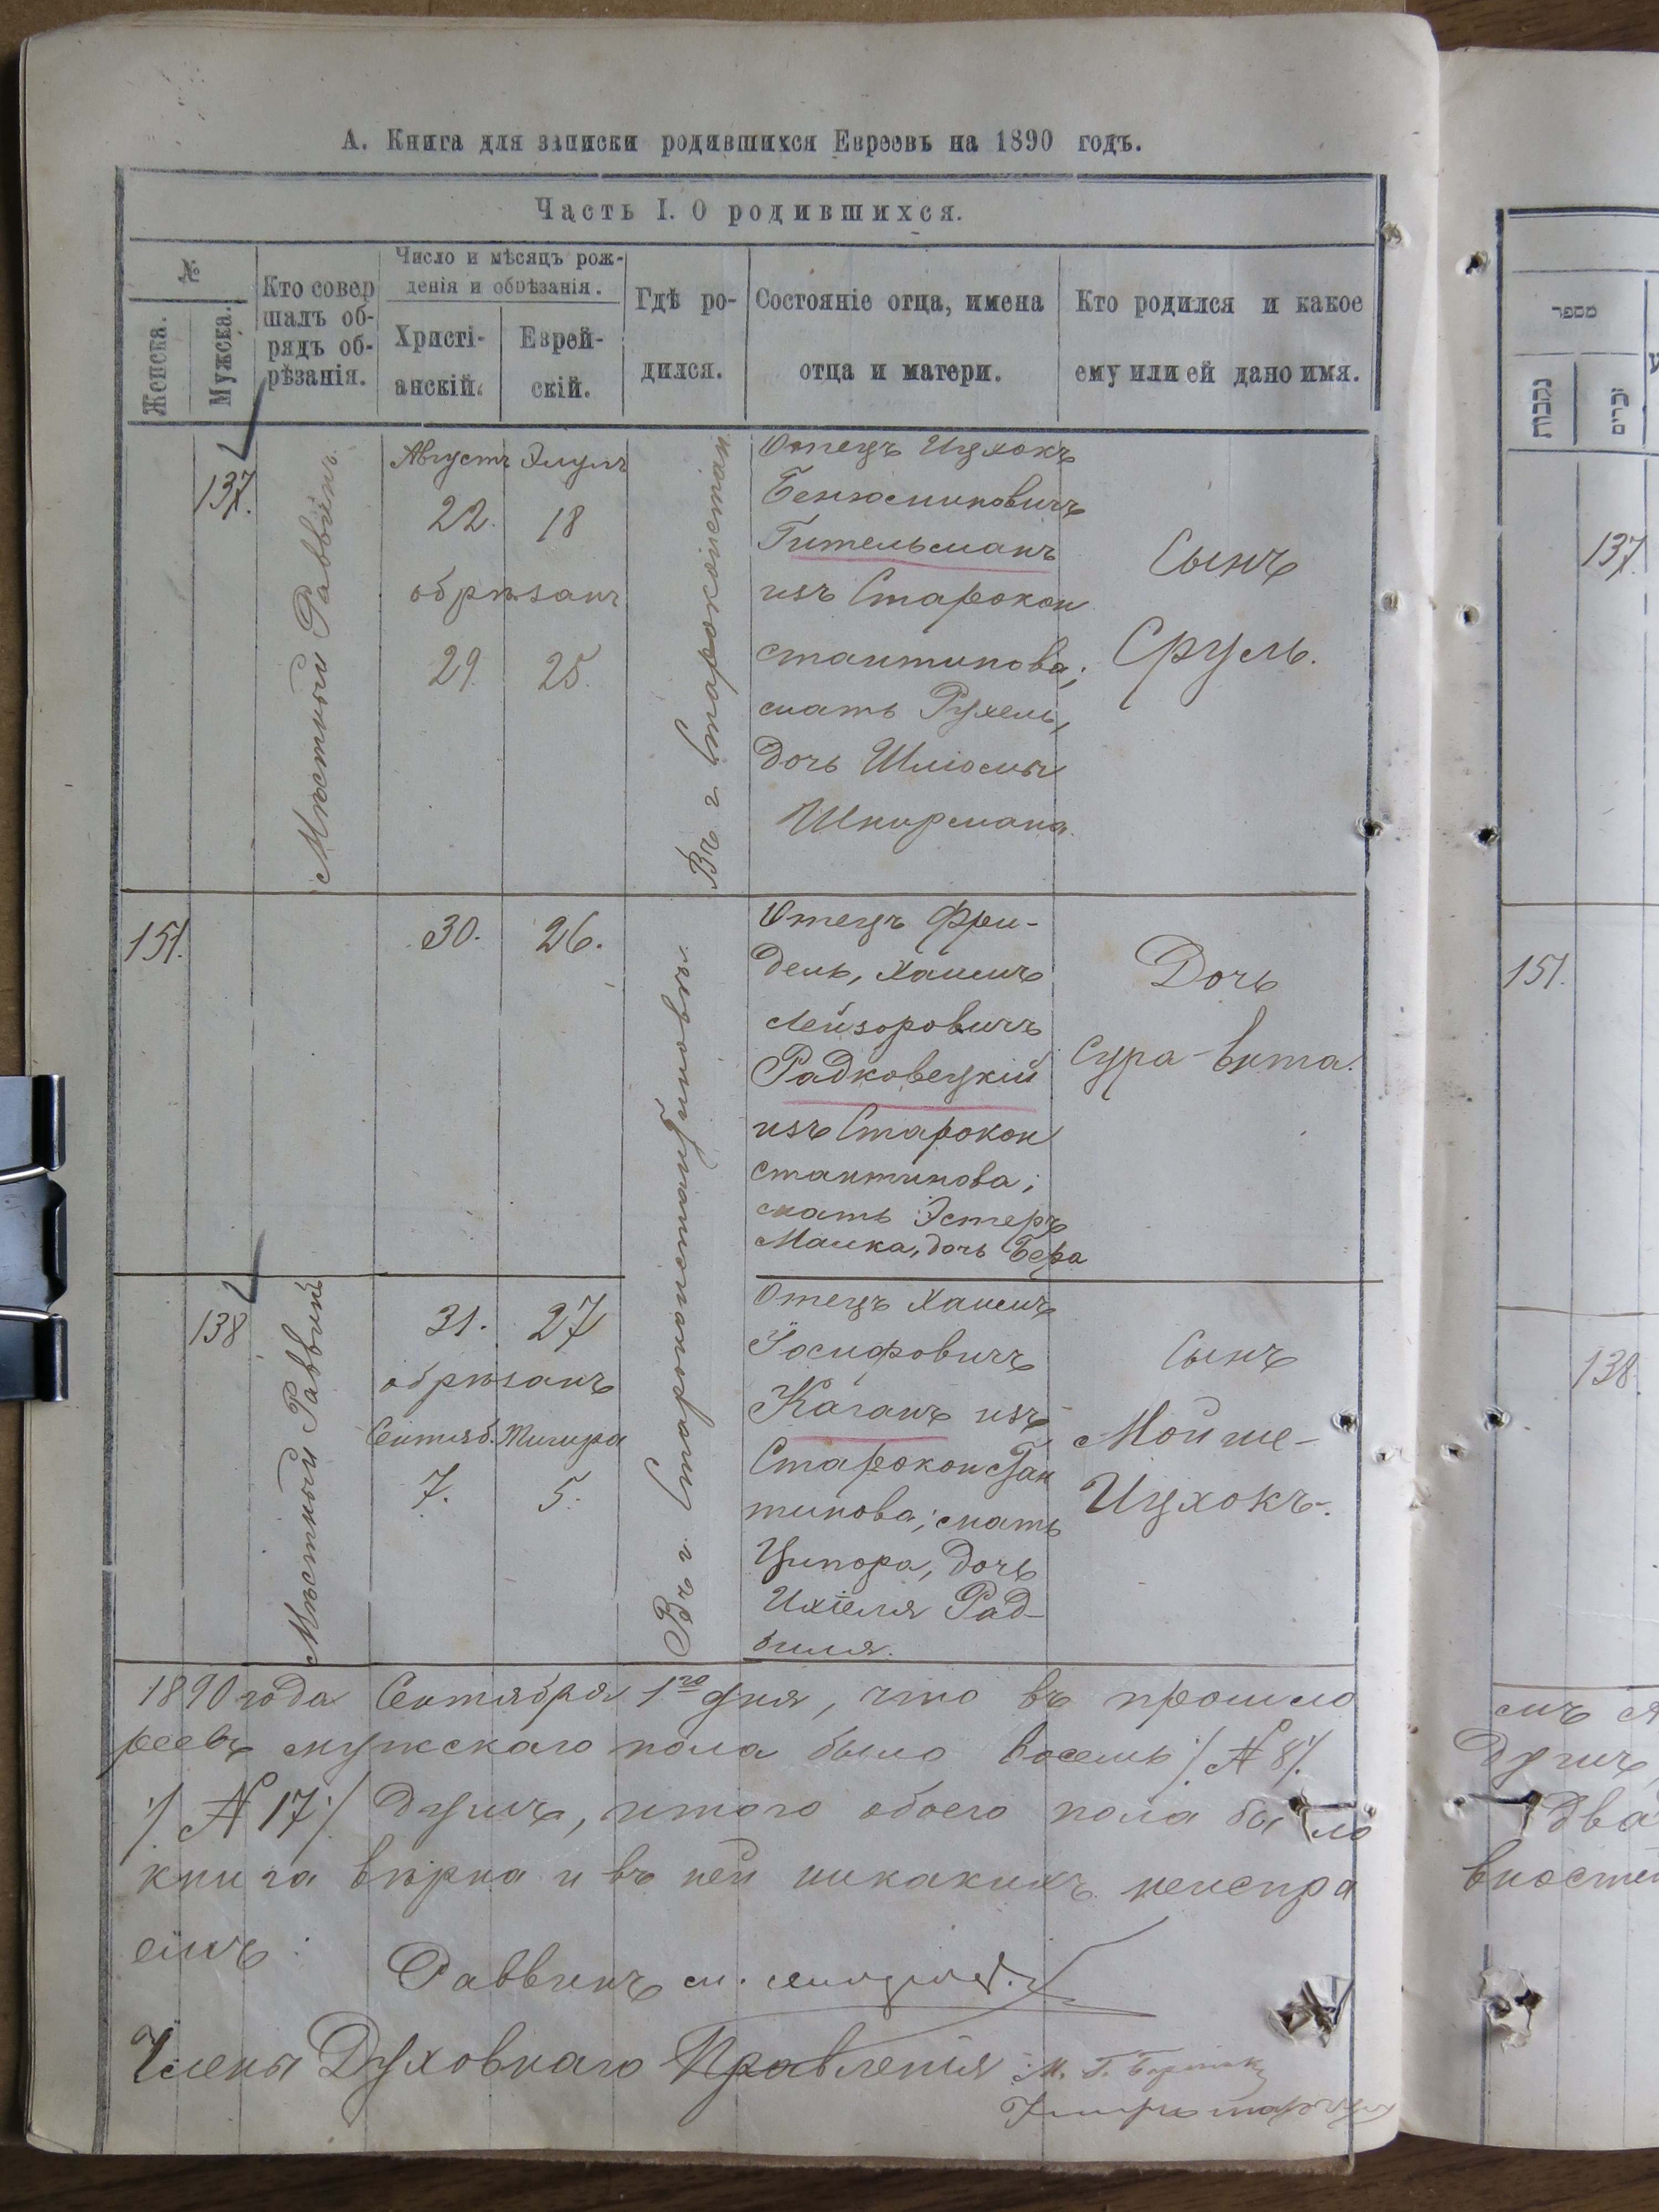 А. Книга для записки родившихся Евреевъ на 1890 годъ.
Часть I. О родившихся.
№
Женска.
Мужска.
Кто совер
шалъ об-
рядъ об-
рѣзанія.
Число и мѣсяцъ рож-
денія и обрѣзанія.
Христі-
анскій.
Еврей-
скій.
Гдѣ ро-
дился.
Состояніе отца, имена
отца и матери.
Кто родился и какое
ему или ей дано имя.
137.
Мѣстный Раввинъ
Августъ Элулъ
22. 18
обрѣзанъ
29. 25.
Въ г. Староконстан
Отецъ Ицхокъ
Бенюминовичъ
Гительманъ
изъ Старокон
стантинова;
мать Рухель,
дочь Шліомы
Шпирмана.
Сынъ
Сруль.
151.
30. 26.
Въ г. Староконстантиновѣ
Отецъ Фри-
дель, Хаимъ
Лейзоровичъ
Радковецкій
изъ Старокон
стантинова;
мать Эстеръ
Малка, дочь Бера
Дочь
Сура-Бита.
138
Мѣстный Раввинъ
31. 27
обрѣзанъ
Сентяб. Тишра
7. 5.
Отецъ Хаимъ
Іосифовичъ
Каганъ изъ
Староконстан
тинова; мать
Ципора, дочь
Ихіеля Рад-
виля.
Сынъ
Мойше-
Ицхокъ.
1890 года Сентября 1го дня, что въ прошло
реевъ мужскаго пола было восемь ·/. № 8 ·/.
·/. № 17 ·/. душъ, итого обоего пола было
книга вѣрна и въ ней никакихъ неиспра
емъ:
Раввинъ М.
Члены Духовнаго Правленія М. Г.
מספר
נקבות
זכרים
137.
151.
138.
мъ
душъ
два
вностей